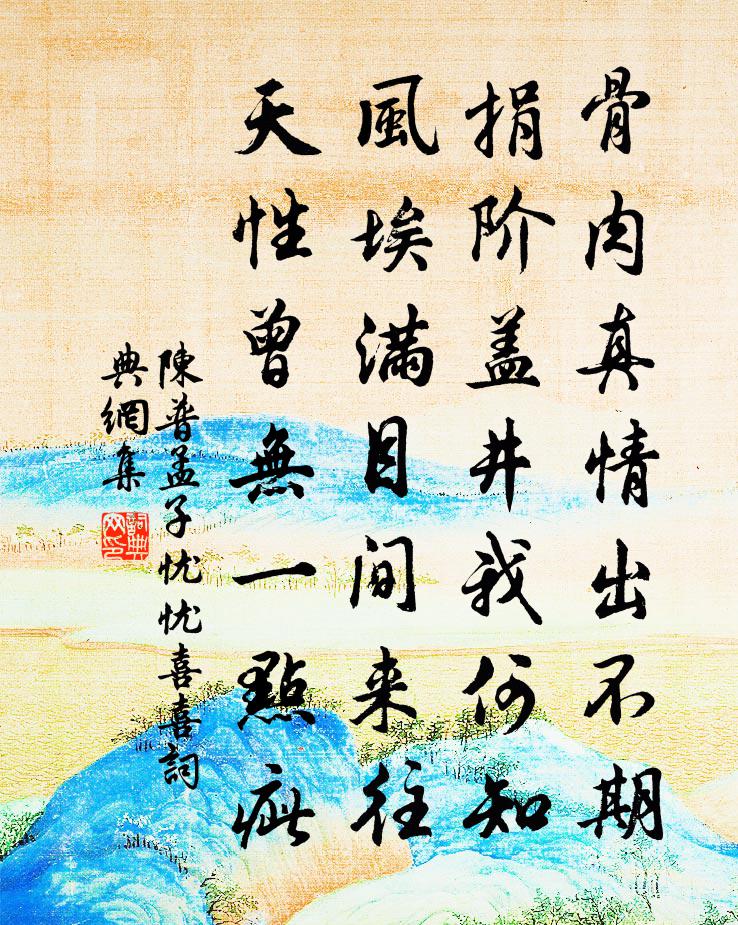 骨肉真情出不期
捐阶盖井我何知
風埃满目间来往
天性曾無一點疵
陳普孟子忧忧喜喜詞
典網集
詞典